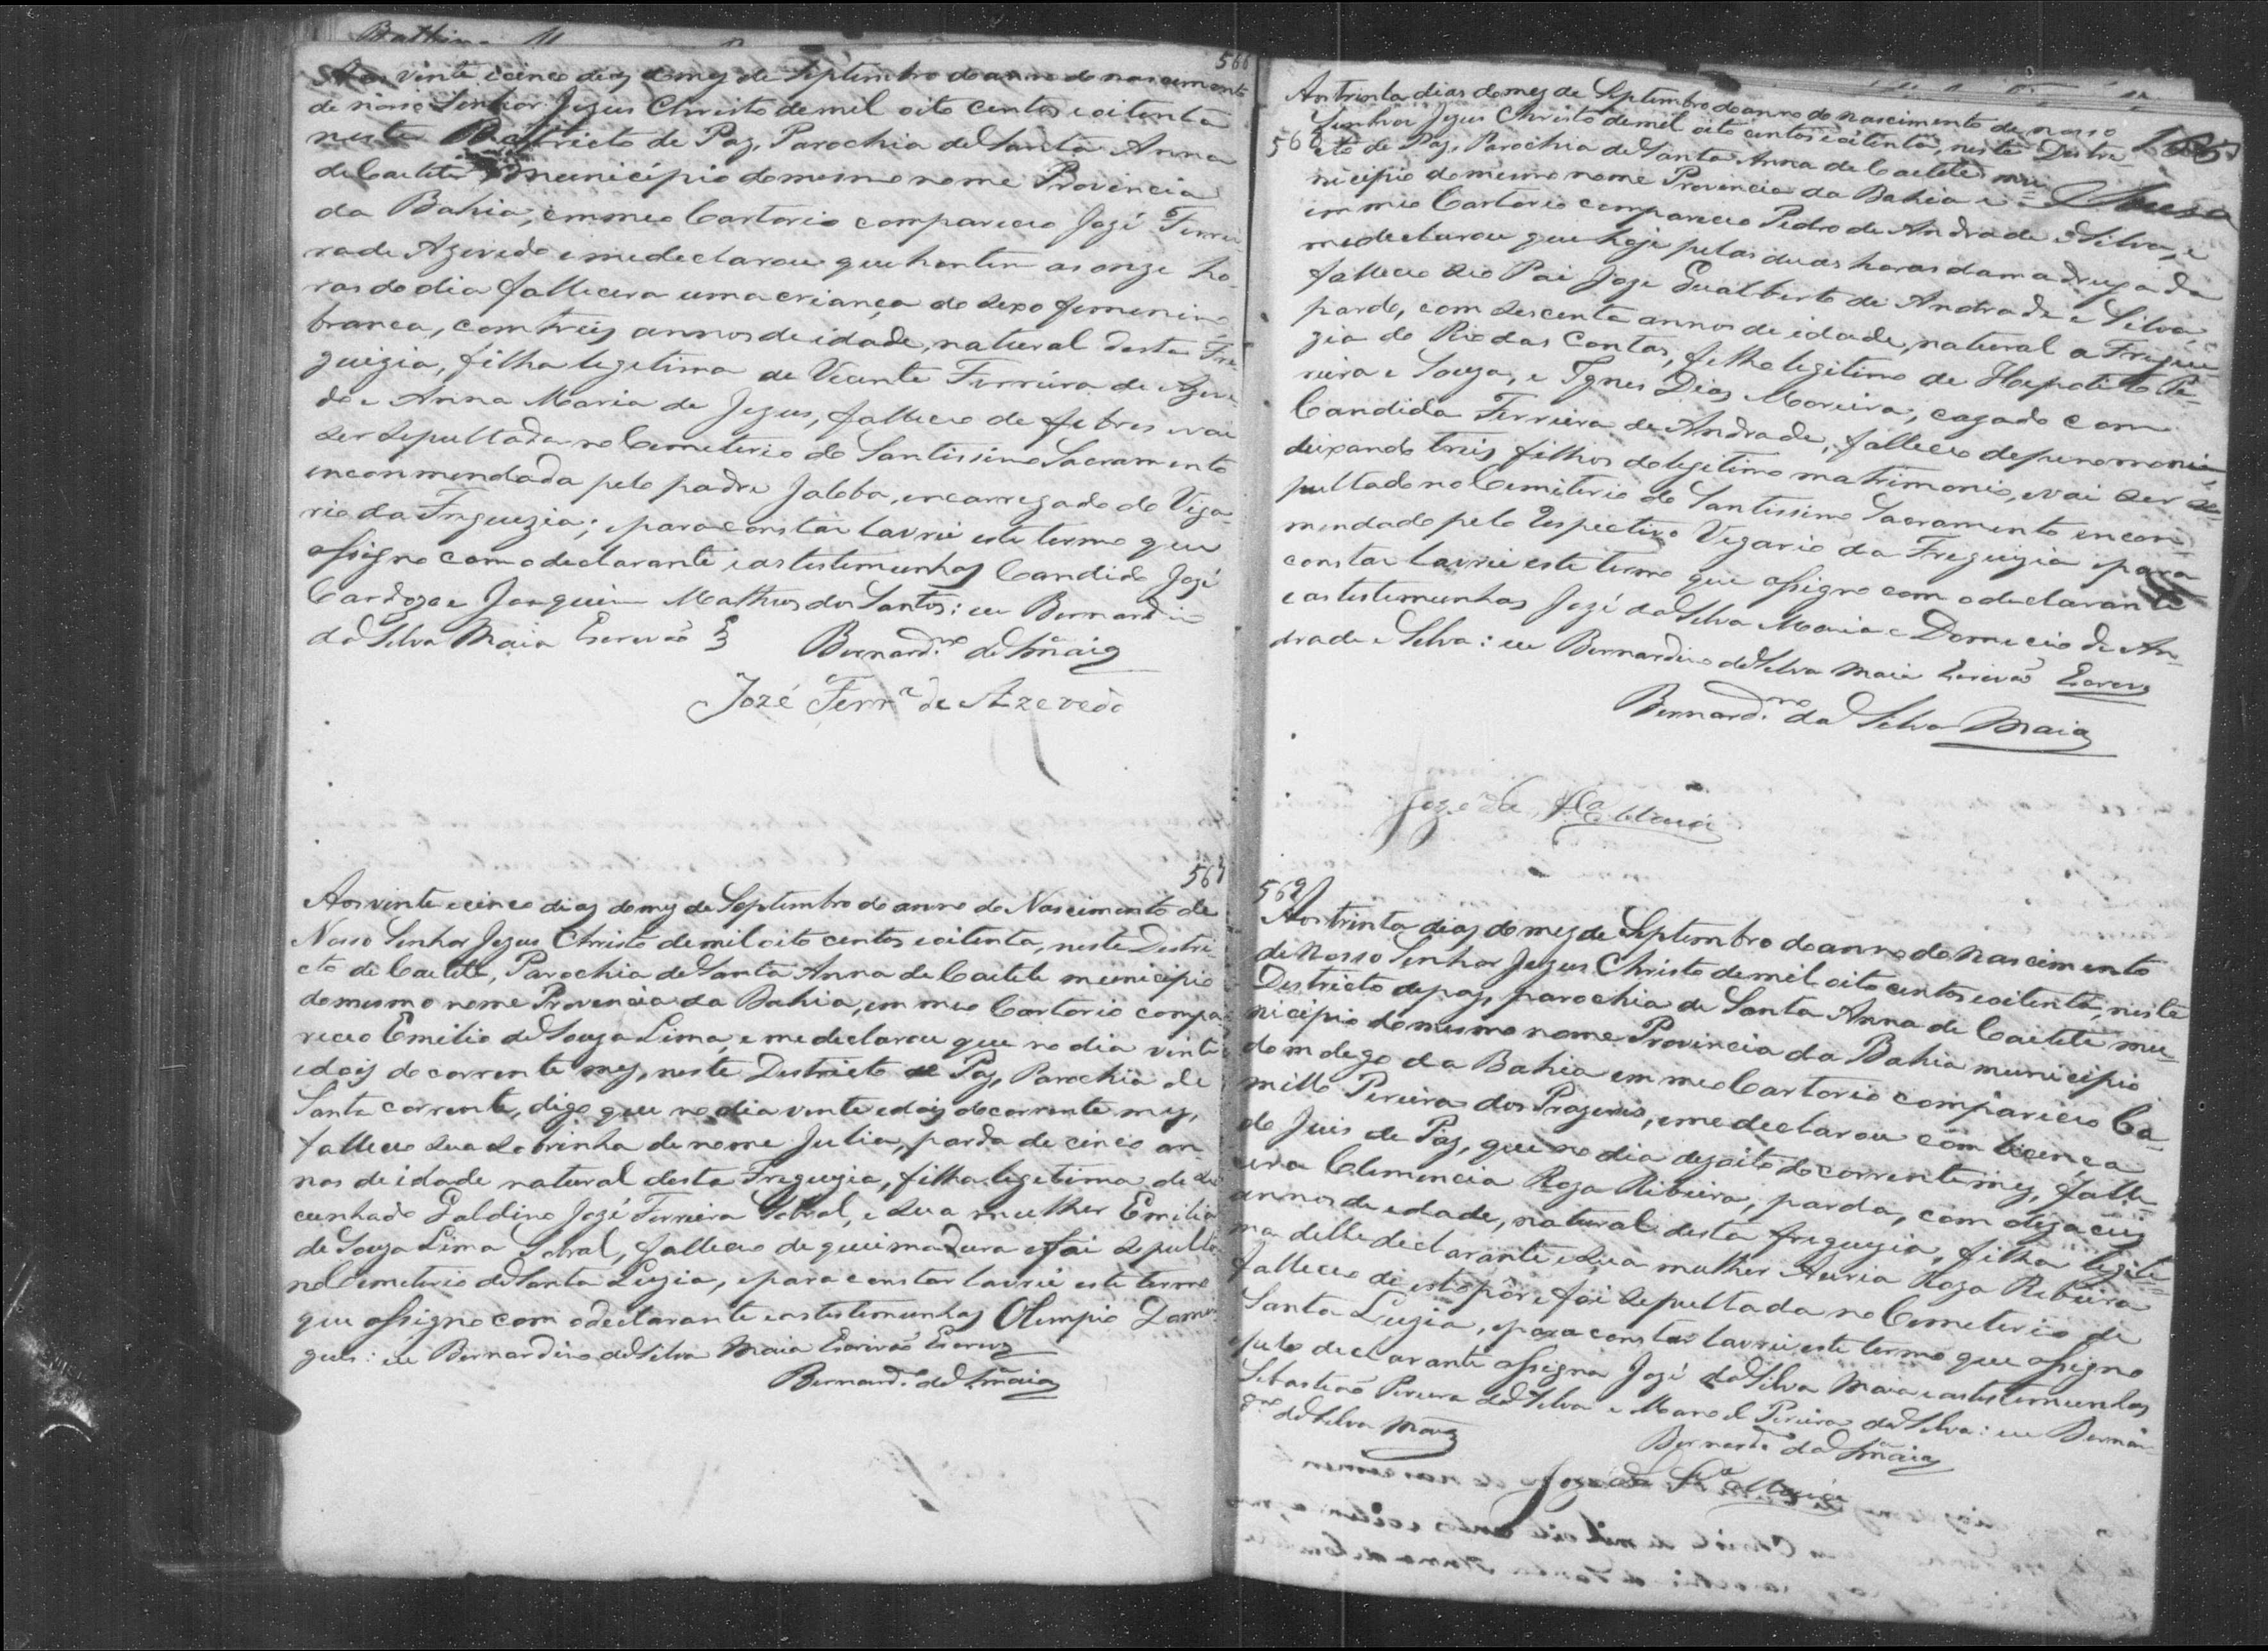 566
Aos vinte e cinco dias do mez de Septembro do anno do nascimento
de nosso Senhor Jezus Christo de mil oito centos e oitenta
neste Districto de Paz, Parochia de Santa Anna
de Caeteté municipio do mesmo nome Provincia
da Bahia, em meo Cartorio compareceo Jozé Ferrei-
ra de Azevedo e me declarou que hontem as onze ho-
ras do dia fallecera uma criança do sexo femenino
branca, com treis annos de idade, natural desta Fre
guizia, filha legitima de Vicente Ferreira de Azeve-
do e Anna Maria de Jezus, falleceo de febres e vai
ser sepultada no Cemeterio do Santissimo Sacramento
enconmendada pelo padre, encarregado do Viga-
rio da Freguezia; e para constar lavrei este termo que
assigno com o declarante e as testemunhas Candido Jozé
Cardozo e Joaquim Matheus dos Santos: eu Bernardin
da Silva Maia Escrivaõ
Bernard.no da S.a Maia
Jozé Ferr.a de Azevedo
567
Aos vinte e cinco dias do mez de Septembro do anno do Nascimento de
Nosso Senhor Jezus Christo de mil oito centos e oitenta, neste Destri-
cto de Caeteté, Parochia de Santa Anna de Caeteté municipio
do mesmo nome Provencia da Bahia, em meo Cartorio compa
receo Emilio de Souza Lima, e me declarou que no dia vinte
e dois do corrente mez, neste Destricto de Paz, Parochia de
Santa corrente, digo que no dia vinte e dois do corrente mez,
falleceo sua sobrinha de nome Julia, parda de cinco an-
nos de idade natural desta Freguezia, filha legitima de seo
cunhado Galdino Jozé Ferreira Sobral, e sua mulher Emilia
de Souza Lima Sobral, falleceo de queimadura e foi sepulta
no Cemeterio de Santa Luzia, e para constar lavrei este termo
que assigno com o declarante e as testemunhas Olimpio Domin
gues: eu Bernardino da Silva Maia Escrivaõ Escrevy
Bernard.o da S.a Maia
Aos trinta dias do mez de Septembro do anno do nascimento de nosso
Senhor Jezus Christo de mil oito centos e oitenta, neste Destri
568
cto de Paz, Parochia de Santa Anna de Caeteté mu-
nicipio do mesmo nome Provencia da Bahia e
em meo Cartorio compareceo Pedro de Andrade e Silva, e
me declarou que hoje pelas duas horas da madrugada
falleceo seo Pai Joze Gualberto de Andrade e Silva,
pardo, com secenta annos de idade, natural a Fregue-
zia do Rio das Contas, filho legitimo de Hepolito Pe-
reira e Souza, e Ignes Dias Moreira, cazado com
Candida Ferreira de Andrade, falleceo de penomonia
deixando treis filhos do legitimo matrimonio, e vai ser se-
pultado no Cemiterio do Santissimo Sacramento encom-
mendado pelo Respectivo Vegario da Freguizia e para
constar lavrei este termo que assigno com o declarante
e as testemunhas Jozé da Silva Maia e Domecio de An-
drade e Silva: eu Bernardino da Silva Maia Escrivaõ Escrevy
Bernard.no da Silva Maia
Joze da S.a Maia
569
Aos trinta dias do mez de Septembro do anno do nascimento
de Nosso Senhor Jezus Christo de mil oito centos e oitenta, neste
Destricto de paz, parochia de Santa Anna de Caeteté mu-
nicipio do mesmo nome Provincia da Bahia municipio
do m dego da Bahia em meo Cartorio compareceo Ca-
millo Pereira dos Prazeres, e me declarou com licença
do Juis de Paz, que no dia dezoito do corrente mez, falle-
cera Clemencia Roza Ribeira, parda, com dezaceis
annos de edade, natural desta freguezia, filha legiti-
ma delle declarante e sua mulher Maria Roza Ribeira
falleceo de estopôr e foi sepultada no Cemeterio de
Santa Luzia, e para constar lavrei este termo que assigno
e pelo declarante assigna Jozé da Silva Maia e as testemunhas
Sebastiaõ Pereira da Silva e Manoel Pereira da Silva: eu Bernar-
d.no da Silva Maia
Bernard.o da S.a Maia
Joze da S.a Maia